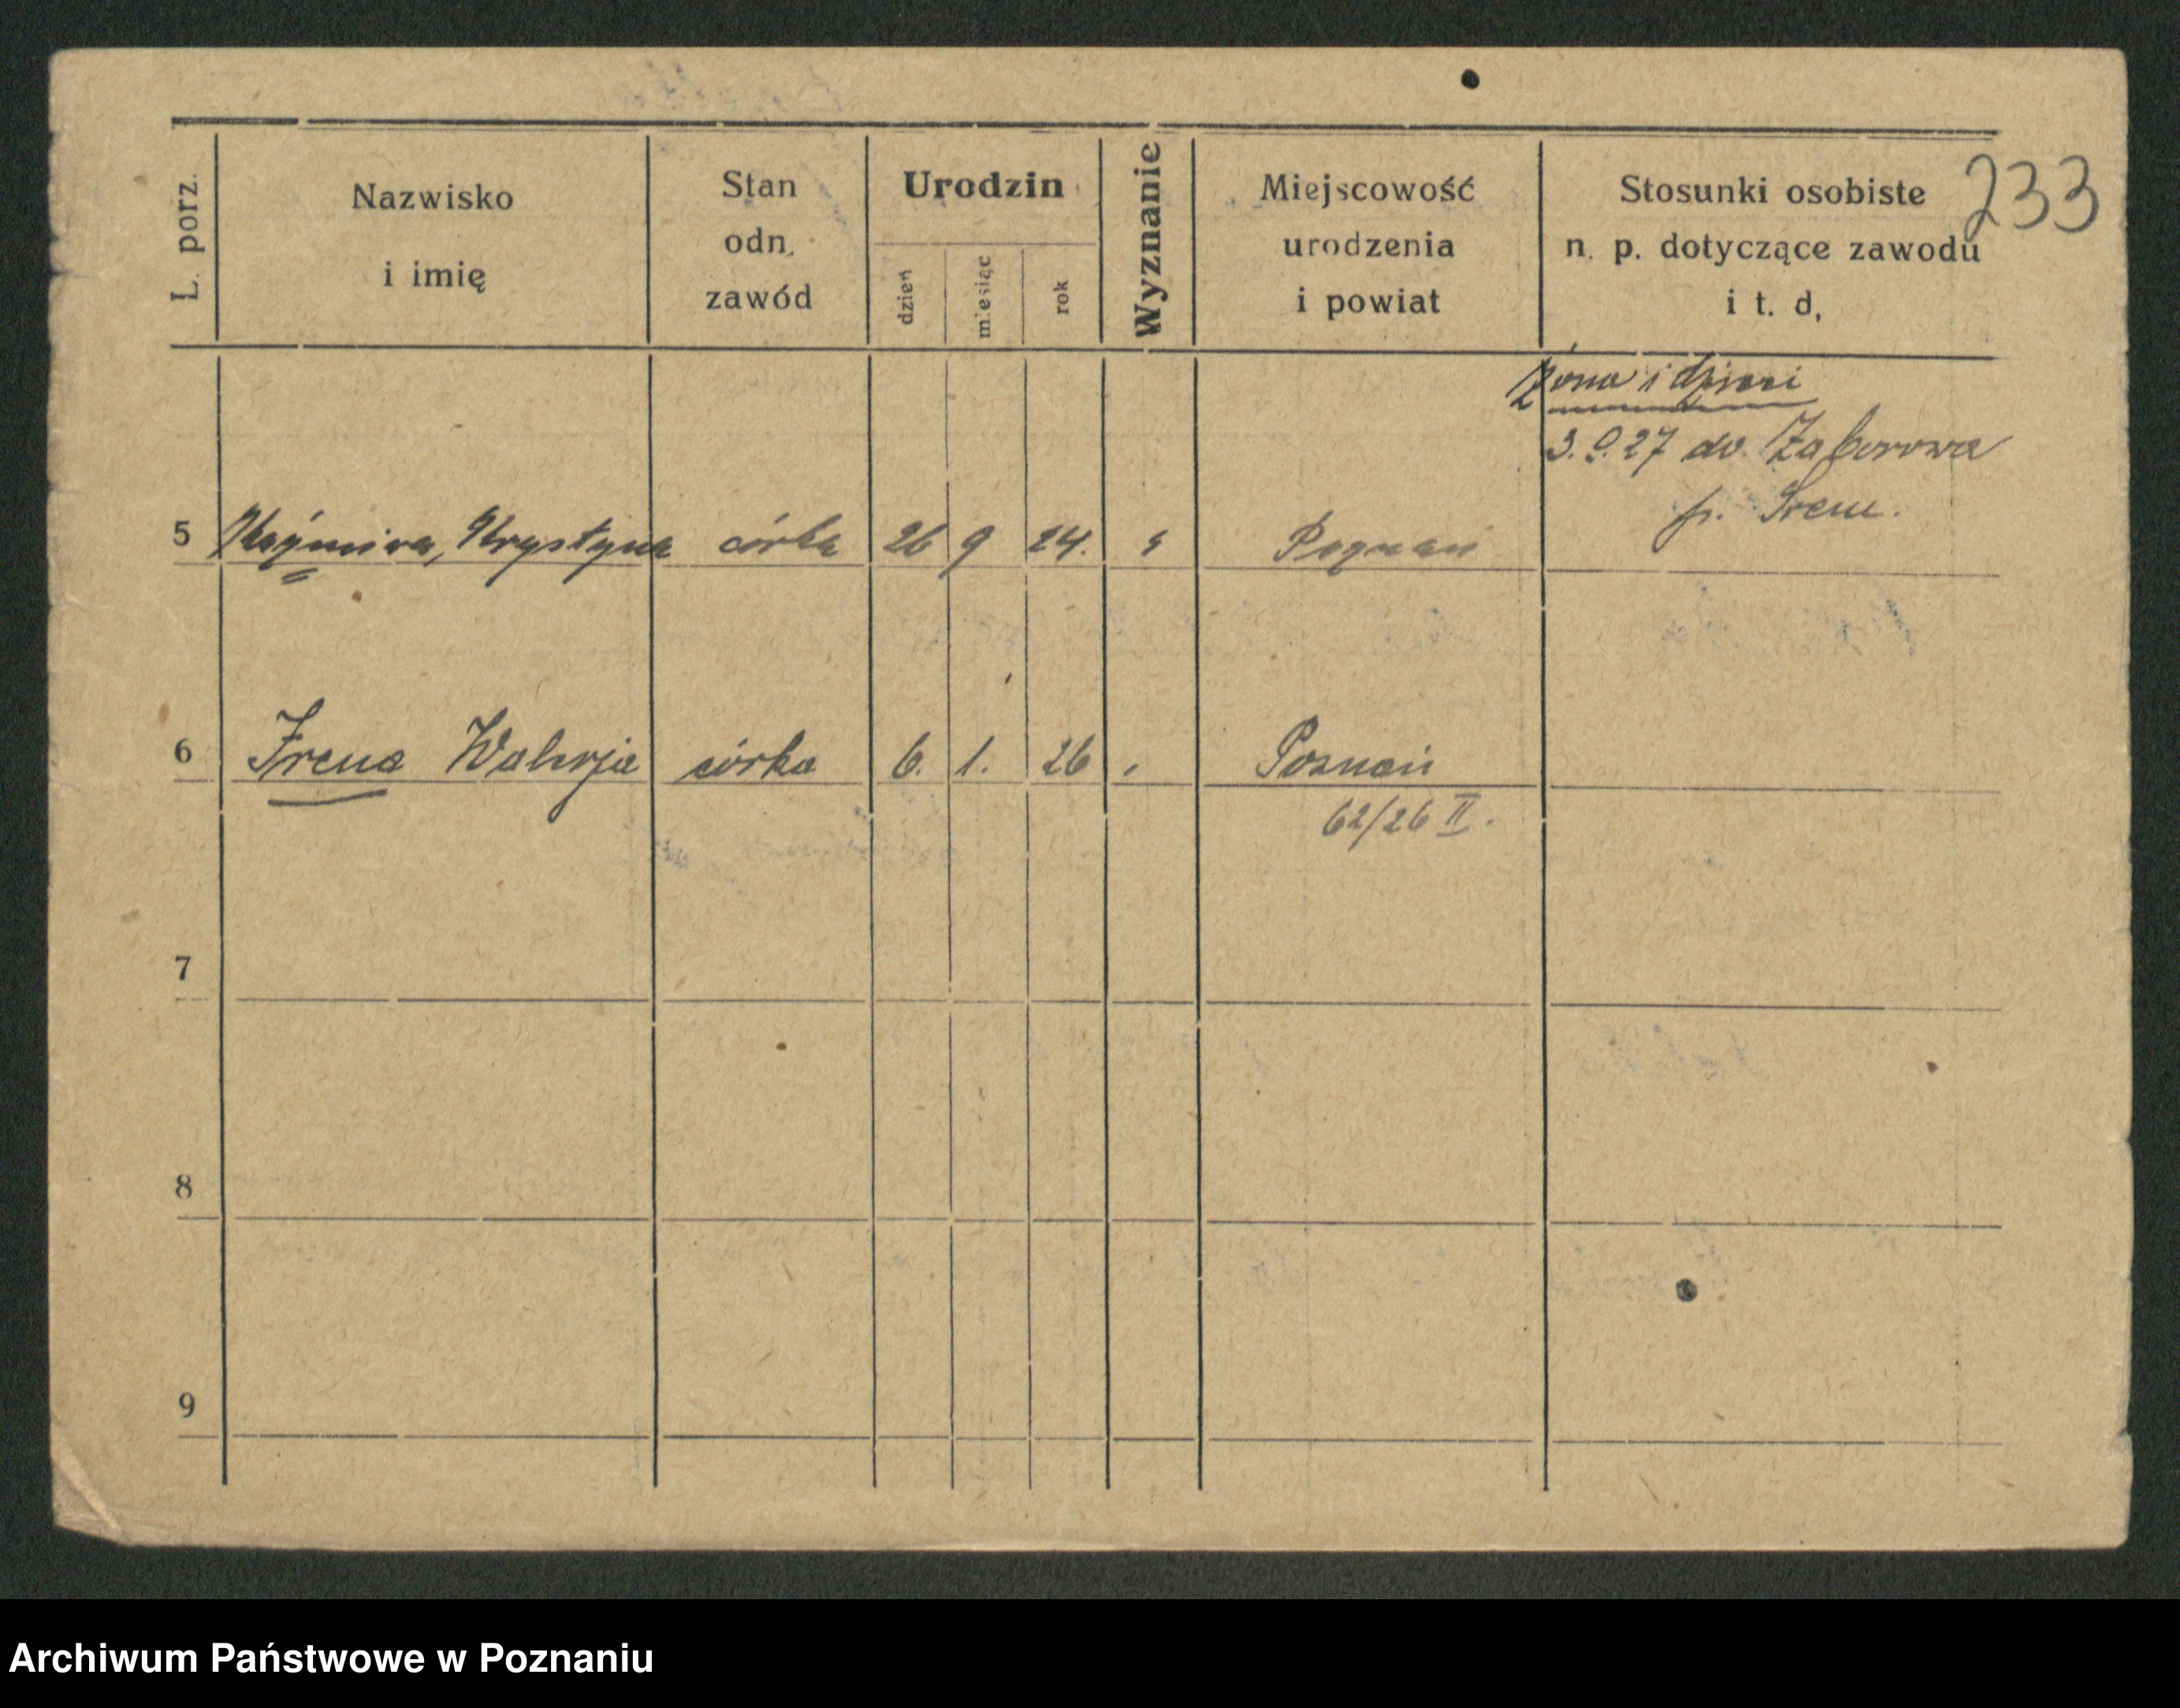 233
L. porz.
Nazwisko
i imię
Stan
odn.
zawód
Urodzin
dzień
miesiąc
rok
Wyznanie
Miejscowość
urodzenia
i powiat
Stosunki osobiste
n. p. dotyczące zawodu
i t. d.
Żona i dzieci
27 do Zaborowa
p. Śrem.
5 Kaźmira, Krystyna córka 26 9 24. Poznań
6 Irena Walerja córka 6. 1. 26 Poznań
62/26 II.
7
8
9
Archiwum Państwowe w Poznaniu